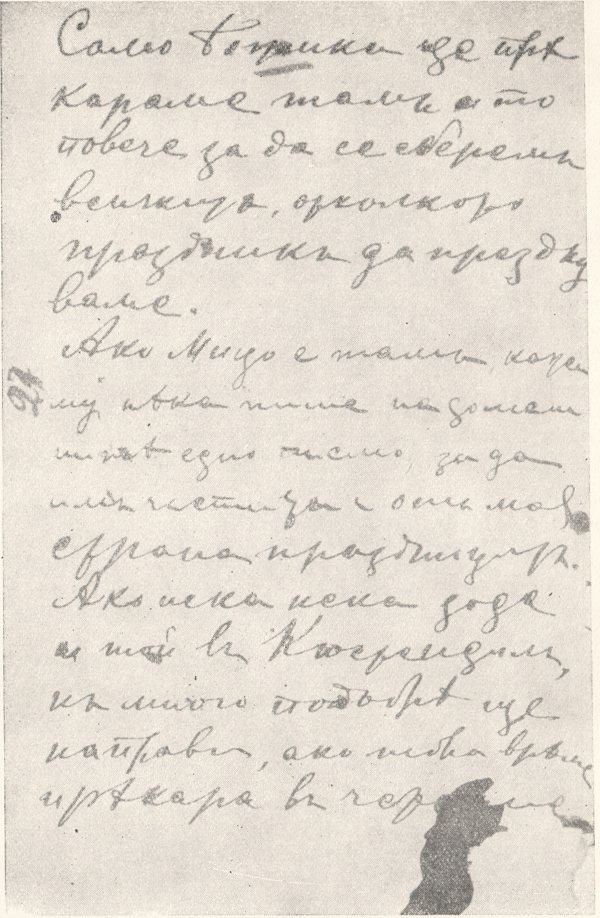 Само ще прѣ
караме тамъ и то
повече за да се сберемъ
всички, отколкото
празникъ да празну
ваме.
Ако Мицо е тамъ, кажи
му нѣка пише на домашни
тѣ едно писмо, за да
имъ и отъ моя
страна празницитѣ.
Ако иска нека дода
и той въ Кюстендилъ,
нъ много подобрѣ ще
направи, ако това врѣме
прѣкара въ
27